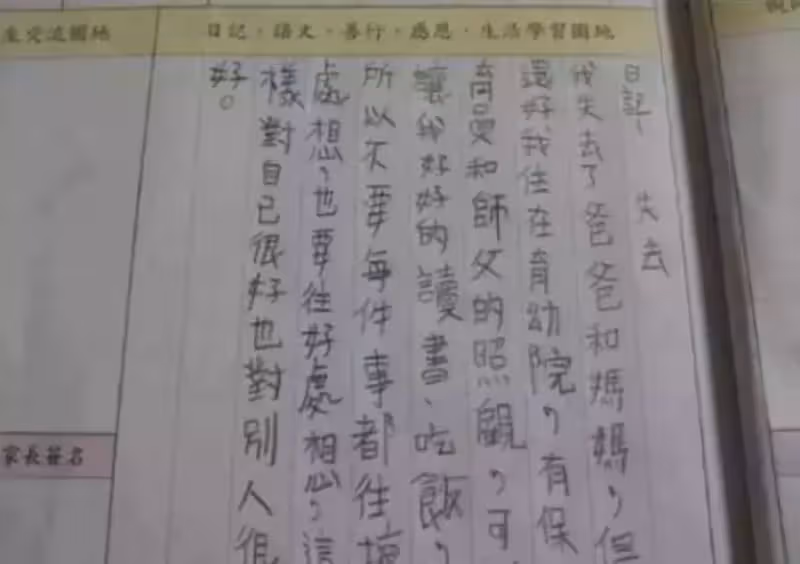 生交流園地
日記、語文、善行、感恩、生活學習園地
日記、
失去
我失去了爸爸和媽媽,但
還好我住在育幼院,有保
育員和師父的照顧,可
讓我好好的讀書、吃飯,
所以不要每件事都往壞
處想,也要往好處想,這
樣對自己很好也對別人很
好。
家長簽名